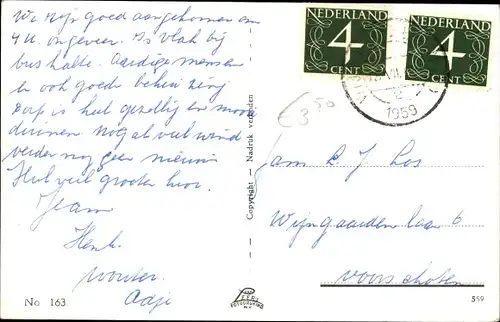 We zijn goed aangekomen om
4 u. ongeveer. Is vlak bij
bus halte. Aardige mensen
en ook goede
dorp is heel gezellig en mooie
duinen nog al veel wind
verder nog geen nieuws
Heel veel groeten hoor.
Henk.
Wouter.
Adji
No 163
Copyright - Nadruk verboden
NEDERLAND
4
CENT
NEDERLAND
4
CENT
1959
3 50
fam L J Los
Wijngaarden laan 6
Voorschoten
559